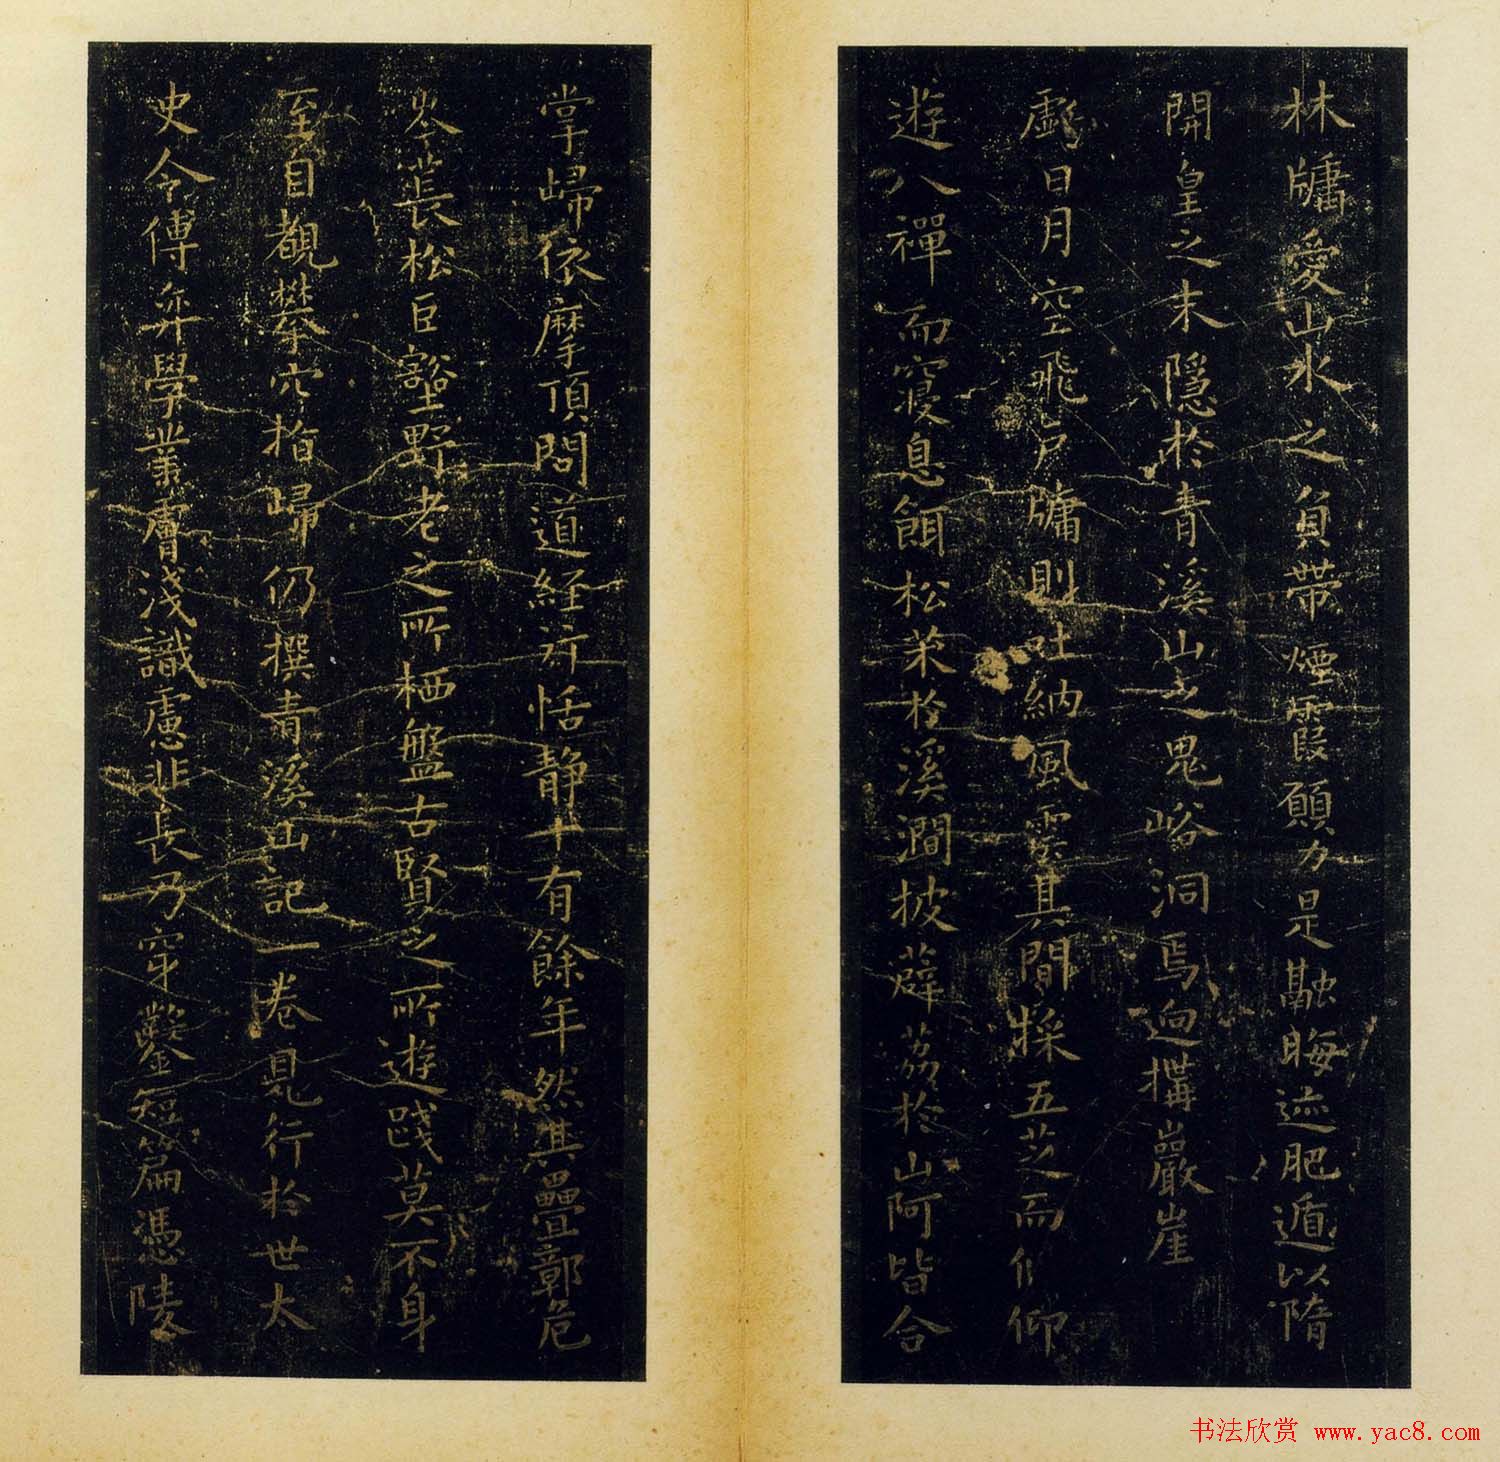 林牖愛山水之負帶煙霞願力是融晦迹肥遁以隋
開皇之末隱於青溪山之鬼峪洞焉迥搆巖崖
虧日月空飛户牖則吐納風雲其間採五芝而仰
遊八禪而寢息餌松茱於溪澗披薜荔於山阿皆合
掌歸依摩頂問道經行恬静十有餘年然其疊鄣危
岑萇松巨壑野老之所栖盤古賢之所遊踐莫不身
至目覩攀穴指歸仍撰青溪山記一卷見行於世太
史令傅弈學業膚淺識慮非長乃穿鑿短篇憑陵
书法欣赏 www.yac8.com